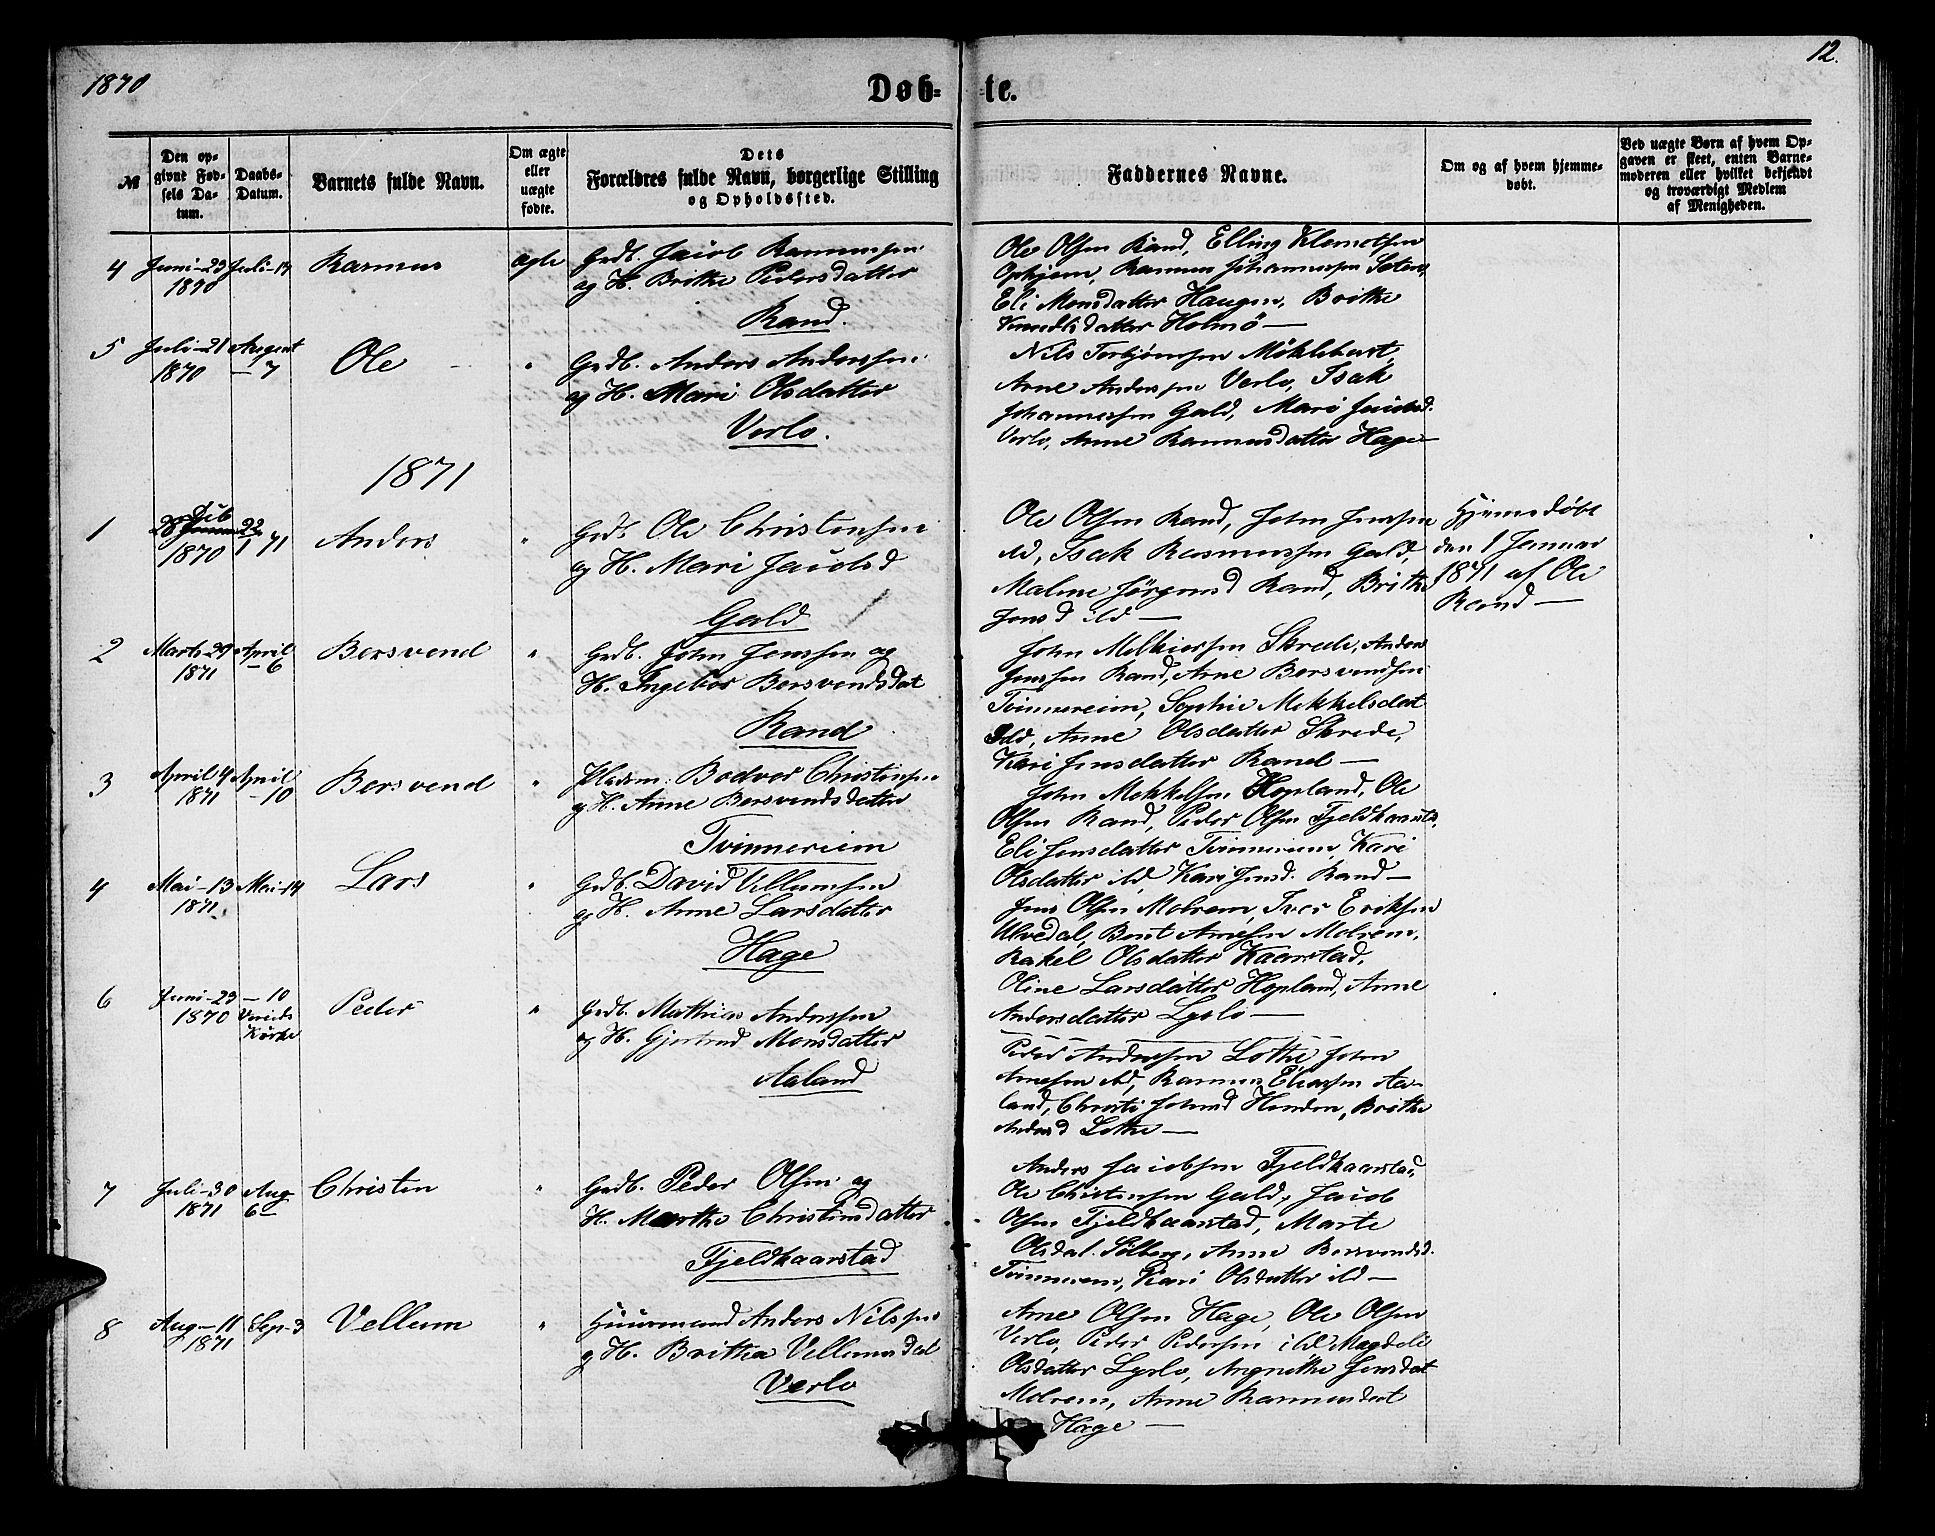 1870
Døb-
te.
12.
№
Den op-
givne Fød-
sels Da-
tum.
Daabs-
Datum.
Barnets fulde Navn.
Om ægte
eller
uægte
fødte.
Dets
Forældres fulde Navn, borgerlige Stilling
og Opholdssted.
Faddernes Navne.
Om og af hvem hjemme-
døbt.
Ved uægte Børn af hvem Op-
gaven er skeet, enten Barne-
moderen eller hvilket bekjendt
og troværdigt Medlem
af Menigheden.
4 Juni-23 Juli-17 Rasmus ægte Grdb. Jacob Rasmussen
1870 og H. Brithe Pedersdatter
Rand.
Ole Olsen Rand, Elling Klemetsen
Ophjem, Rasmus Johannessen Sæten,
Eli Monsdatter Haugen, Brithe
Knudtsdatter Holmö—
5 Juli-21 August Ole " Grdb. Anders Anderssen
1870 —7 og H. Mari Olsdatter
Verlo.
Nils Torbjørnsen Möklebust,
Arne Anderssen Verlo, Isak
Johannessen Gald, Mari Jacobsd.
Verlo, Anne Rasmusdatter Hage—
1871
1 28 Dcb 22/1 71 Anders " Grdb. Ole Christensen
1870 og H. Mari Jacobsd
Gald
Ole Olsen Rand, John Jenssen
ild, Isak Rasmussen Gald,
Malene Jørgensd Rand, Brithe
Jonsd ild —
Hjemmedøbt
den 1 Januar
1871 af Ole
Rand —
2 Marts-29 April Bersvend " Grdb. John Jenssen og
1871 —6 H. Ingebor Bersvendsdat
Rand
John Melkiorssen Skrede, Anders
Jenssen Rand, Arne Bersvendsen
Tvinnereim, Sophie Mekkelsdat
Ild, Anne Olsdatter Skrede,
Kari Jensdatter Rand —
3 April 4 April Bersvend " Pladsm. Bodvor Christensen
1871 —10 og H. Anne Bersvendsdatter
Tvinnereim
John Mekkelsen Hopland, Ole
Olsen Rand, Peder Olsen Fjeldkaarstd,
Eli Jensdatter Tvinnereim, Kari
Olsdatter ild, Kari Jensd. Rand—
4 Mai-13 Mai-14 Lars " Grdb. David Vellumsen
1871 og H. Anne Larsdatter
Hage
Jens Olsen Molrem, Iver Eriksen
Ulvedal, Bent Arnesen Molrem,
Rakel Olsdatter Kaarstad,
Oline Larsdatter Hopland, Anne
Andersdatter Lyslo —
6 Juni-23 —10 Peder " Grdb. Mathias Anderssen
1870 Vereids og H. Gjertrud Monsdatter
Kirke
Aaland
Peder Anderssen Lothe John
Arnesen ild, Rasmus Eliassen Aa-
land, Christi Johnsd Henden, Brithe
Andersd Lothe —
7 Juli-30 Aug Christen " Grdb. Peder Olsen og
1871 6— H. Marthe Christensdatter
Fjeldkaarstad
Anders Jacobsen Fjeldkaarstad,
Ole Christensen Gald, Jacob
Olsen Fjeldkaarstad, Marte
Olsdat. Sölberg, Anne Bersvendsd.
Tvinnereim, Kari Olsdatter ild—
8 Aug-11 Sep-3 Vellum " Huusmand Anders Nilssen
1871 og H. Brithe Vellumsdat
Verlo
Arne Olsen Hage, Ole Olsen
Verlo, Peder Pedersen ild Magdeli
Olsdatter Lyslo, Jensdat
Molrem, Anne Rasmusdat
Hage —